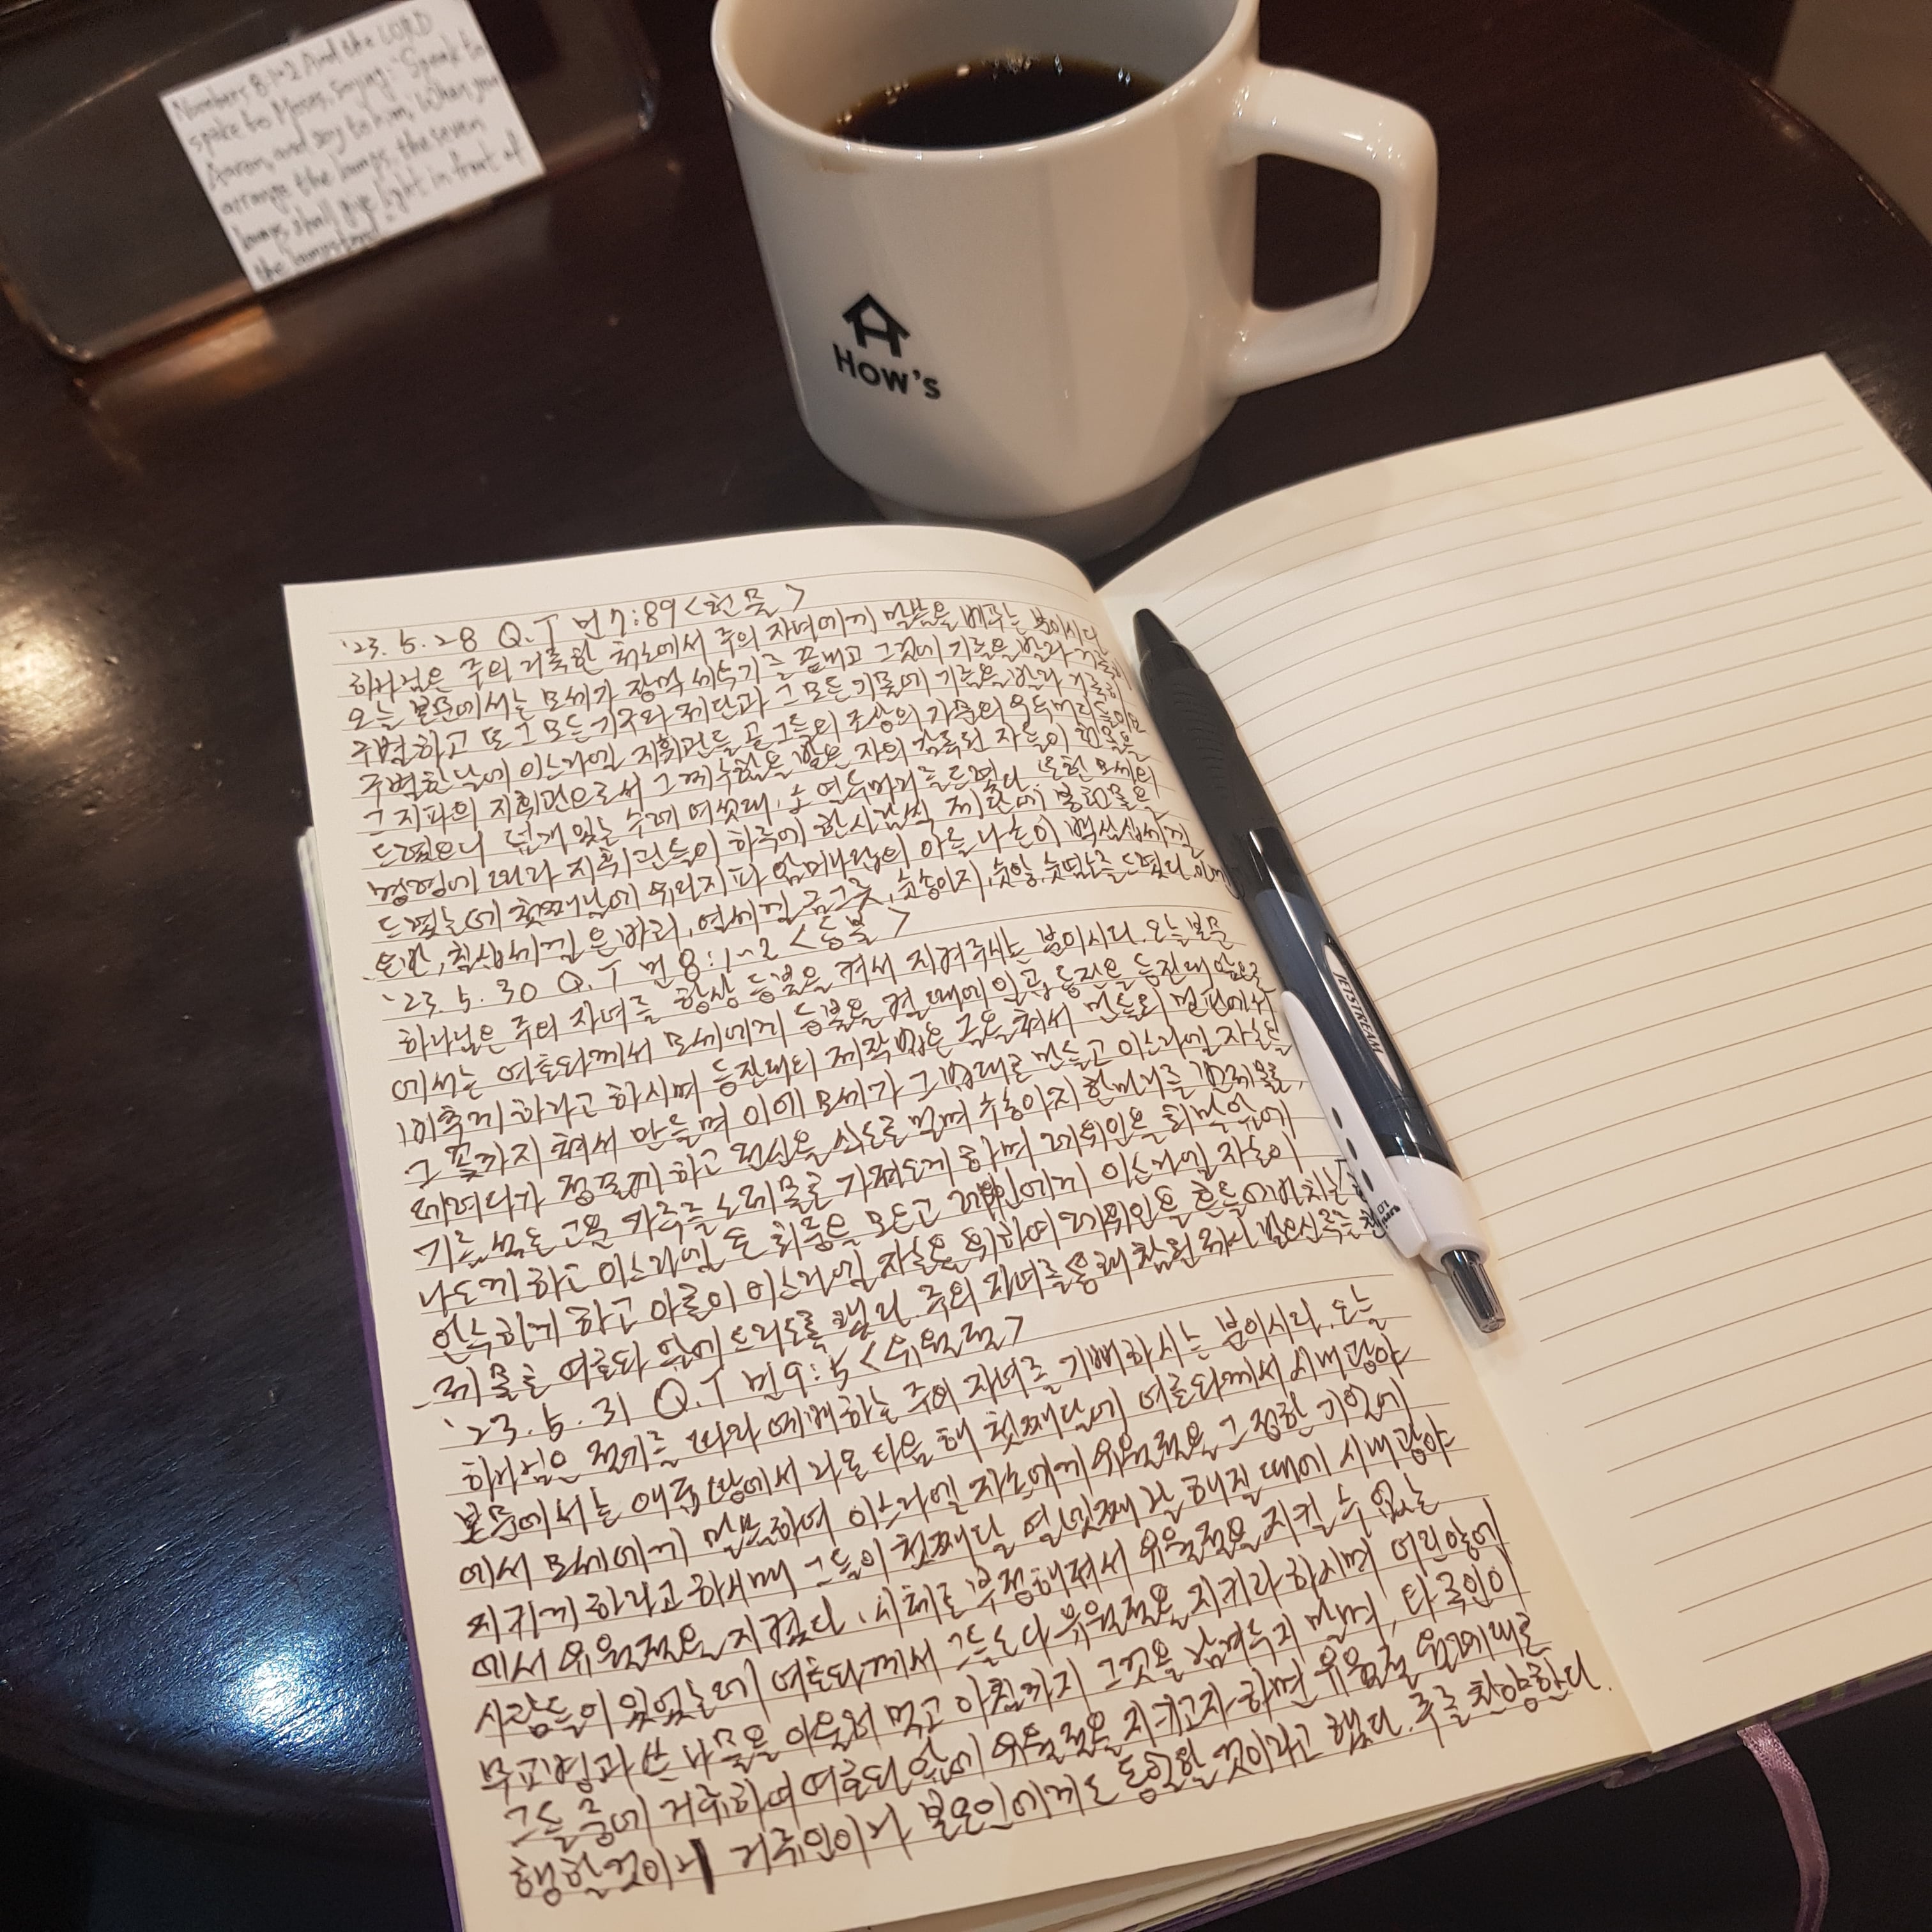 Numbers 8:1~2 And the LORD
spoke to Moses, saying: "Speak to
Aaron, and say to him, 'When you
arrange the lamps, the seven
lamps shall give light in front of
the lampstand
How's
'23. 5. 28 Q.T 민7:89 <헌물>
하나님은 주의 거룩한 처소에서 주의 자녀에게 말씀을 베푸는 분이시다
오늘 본문에서는 모세가 장막 세우기를 끝내고 그것에 기름을 발라 거룩히
구별하고 또 그 모든 기구와 제단과 그 모든 기물에 기름을 발라 거룩히
구별한 날에 이스라엘 지휘관들 곧 그들의 조상의 가문의 우두머리들이요
그 지파의 지휘관으로서 그 계수함을 받은 자의 감독된 자들이 헌물을
드렸으니 덮개 있는 수레 여섯대, 소 열두마리를 드렸다. 또한 모세의
명령에 따라 지휘관들이 하루에 한사람씩 제단에 봉헌물을
드렸는데 첫째날에 유다지파 암미나답의 아들 나손이 백삼십세겔
은반, 칠십세겔 은바리, 열세겔 금그릇, 숫송아지, 숫양, 숫염소를 드렸다.
'23. 5. 30 Q.T 민8:1~2 <등불>
하나님은 주의 자녀를 항상 등불을 켜서 지켜주시는 분이시다. 오늘 본문
에서는 여호와께서 모세에게 등불을 켤 때에 일곱 등잔을 등잔대 앞으로
비추게 하라고 하시며 등잔대의 제작법은 금을 쳐서 만들되 밑판에서
그 꽃까지 쳐서 만들며 이에 모세가 그 법대로 만들고 이스라엘 자손들
레여다가 정결케 하고 전신을 삭도로 밀며 수송아지 한마리를 번제물로,
기름 섞은 고운 가루를 소제물로 가져오게 하며 레위인을 회막앞에
나오게 하고 이스라엘 온 회중을 모으고 레위인에게 이스라엘 자손이
안수하게 하고 아론이 이스라엘 자손을 위하여 레위인을 흔들어 바치는
제물로 여호와 앞에 드리도록 했다. 주의 자녀를 통해 참된
'23. 5. 31 Q.T 민9:5 <유월절>
하나님은 절기를 따라 예배하는 주의 자녀를 기뻐하시는 분이시다. 오늘
본문에서는 애굽땅에서 나온 다음 해 첫째달에 여호와께서 시내광야
에서 모세에게 말씀하여 이스라엘 자손에게 유월절을 그 정한 기일에
지키게 하라고 하시매 그들이 첫째달 열넷째날 해질 때에 시내광야
에서 유월절을 지켰다. 시체로 부정해져서 유월절을 지킬 수 없는
사람들이 있었는데 여호와께서 그들도 다 유월절을 지키라 하시며 어린양에
무교병과 쓴 나물을 아울러 먹고 아침까지 그것을 남겨두지 말며, 타국인이
그들 중에 거류하여 여호와 앞에 유월절을 지키고자 하면 유월절 율례대로
행할것이니 거류인이나 본토인에게도 동일할 것이라고 했다. 주를 찬양한다.
JETSTREAM